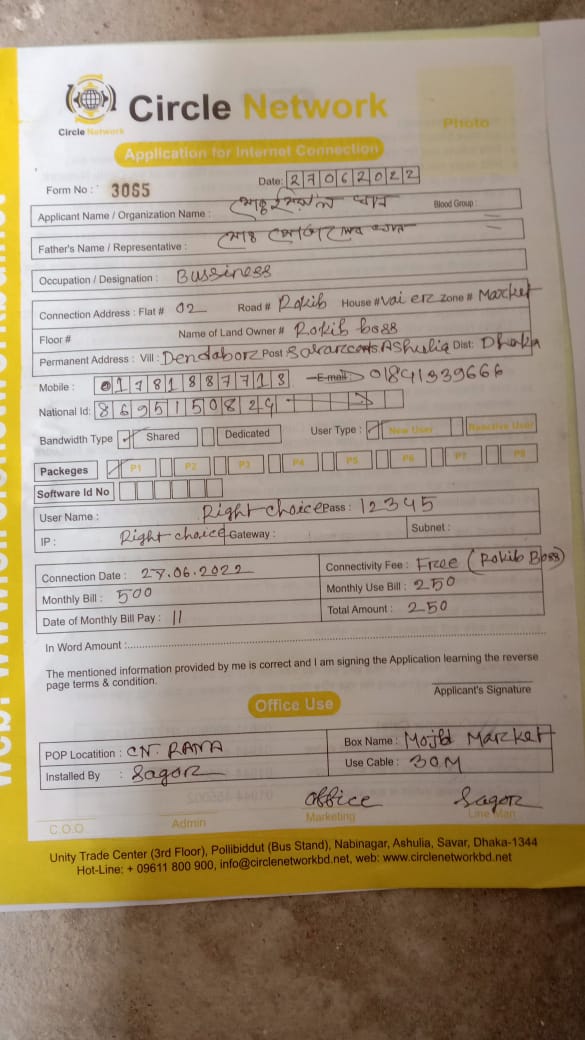 Circle Network
Circle Network
Photo
Application for Internet Connection
Form No : 3065 Date: 27062022
Applicant Name / Organization Name : মোঃ খান Blood Group :
Father's Name / Representative : মোঃ খান
Occupation / Designation : Bussiness
Connection Address : Flat # 02 Road # Rokib House # vai er Zone # Market
Floor # Name of Land Owner # Rokib boss
Permanent Address : Vill : Dendabor Post Ashulia Dist: Dhaka
Mobile : 01781887713 E-mail 01841339666
National Id: 8695150824
Bandwidth Type Shared Dedicated User Type : New User Reactive User
Packeges P1 P2 P3 P4 P5 P6 P7 P8
Software Id No
User Name : Right choice Pass : 12345
IP : Right choice Gateway : Subnet :
Connection Date : 27.06.2022 Connectivity Fee : Free (Rokib Boss)
Monthly Bill : 500 Monthly Use Bill : 250
Date of Monthly Bill Pay : 11 Total Amount : 250
In Word Amount :
The mentioned information provided by me is correct and I am signing the Application learning the reverse
page terms & condition.
Applicant's Signature
Office Use
POP Locatition : CN. RANA Box Name : Mojid Market
Installed By : Sagor Use Cable : 30M
office Sagor
C.O.O Admin Marketing Line Man
Unity Trade Center (3rd Floor), Pollibiddut (Bus Stand), Nabinagar, Ashulia, Savar, Dhaka-1344
Hot-Line: + 09611 800 900, info@circlenetworkbd.net, web: www.circlenetworkbd.net